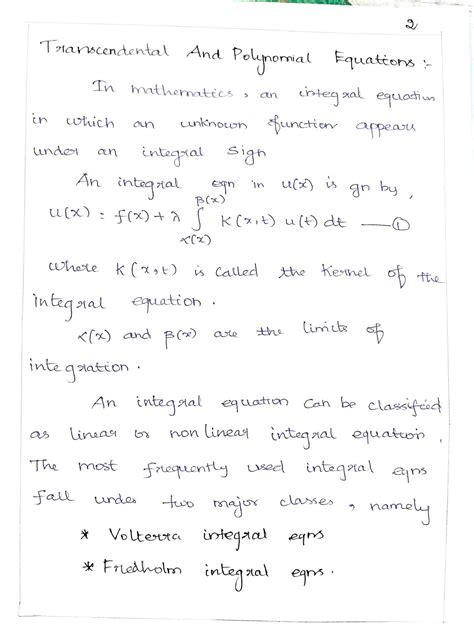 2
Transcendental And Polynomial Equations :-
In mathematics, an integral equation
in which an unknown function appears
under an integral sign
An integral eqn in u(x) is gn by,
u(x) = f(x) + λ ∫_{α(x)}^{β(x)} K(x,t) u(t) dt — ①
where K(x,t) is called the kernel of the
integral equation.
α(x) and β(x) are the limits of
integration.
An integral equation can be classified
as linear or non linear integral equation.
The most frequently used integral eqns
fall under two major classes, namely
* Volterra integral eqns
* Fredholm integral eqns.